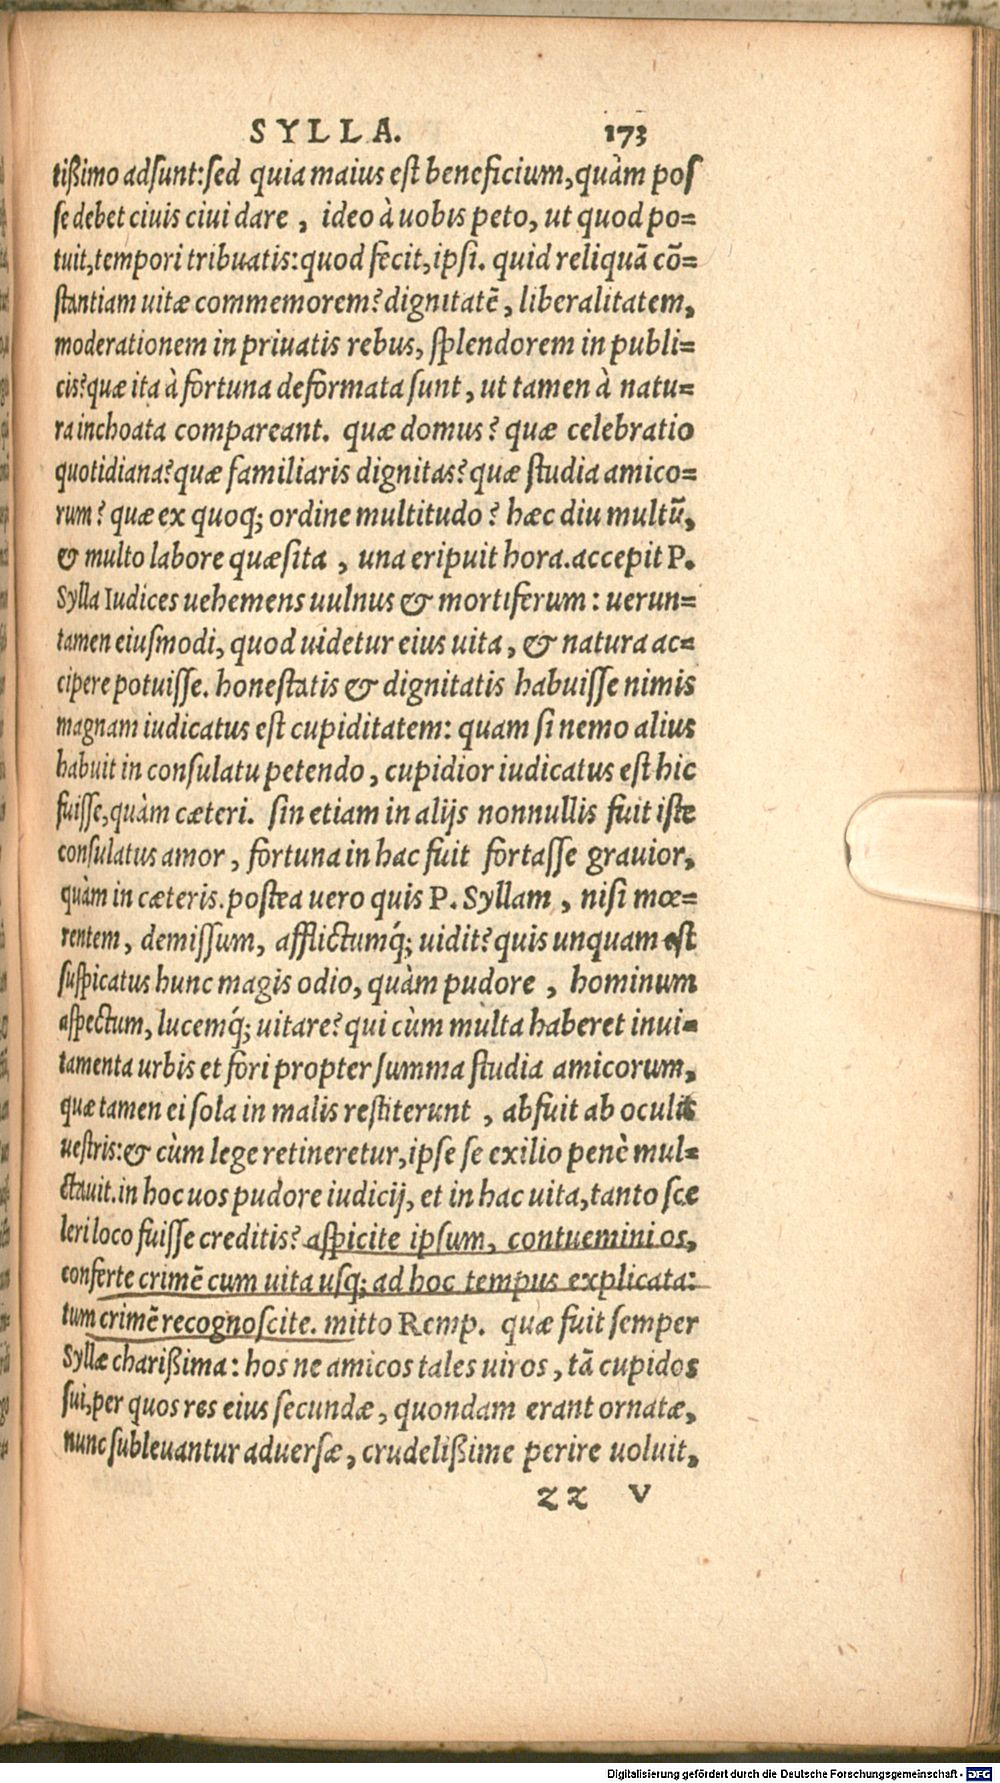 SYLLA. 173
tißimo adsunt:sed quia maius est beneficium,quàm pos
se debet ciuis ciui dare, ideo à uobis peto, ut quod po=
tuit,tempori tribuatis:quod fecit,ipsi. quid reliquā cō=
stantiam uitæ commemorem? dignitatē, liberalitatem,
moderationem in priuatis rebus, splendorem in publi=
cis?quæ ita à fortuna deformata sunt, ut tamen à natu=
ra inchoata compareant. quæ domus? quæ celebratio
quotidiana?quæ familiaris dignitas?quæ studia amico=
rum? quæ ex quoq; ordine multitudo? hæc diu multū,
& multo labore quæsita, una eripuit hora.accepit P.
Sylla Iudices uehemens uulnus & mortiferum: uerun=
tamen eiusmodi, quod uidetur eius uita, & natura ac=
cipere potuisse. honestatis & dignitatis habuisse nimis
magnam iudicatus est cupiditatem: quam si nemo alius
habuit in consulatu petendo, cupidior iudicatus est hic
fuisse,quàm cæteri. sin etiam in alijs nonnullis fuit iste
consulatus amor, fortuna in hac fuit fortasse grauior,
quàm in cæteris.postea uero quis P. Syllam, nisi mœ=
rentem, demissum, afflictumq́; uidit?quis unquam est
suspicatus hunc magis odio, quàm pudore, hominum
aspectum, lucemq́; uitare?qui cùm multa haberet inui=
tamenta urbis et fori propter summa studia amicorum,
quæ tamen ei sola in malis restiterunt, abfuit ab oculis
uestris:& cùm lege retineretur,ipse se exilio penè mul=
ctauit.in hoc uos pudore iudicij, et in hac uita,tanto sce
leri loco fuisse creditis? aspicite ipsum, contuemini os,
conferte crimē cum uita usq; ad hoc tempus explicata:
tum crimē recognoscite. mitto Remp. quæ fuit semper
Syllæ charißima: hos ne amicos tales uiros, tā cupidos
sui,per quos res eius secundæ, quondam erant ornatæ,
nunc subleuantur aduersæ, crudelißime perire uoluit,
zz v
Digitalisierung gefördert durch die Deutsche Forschungsgemeinschaft - DFG